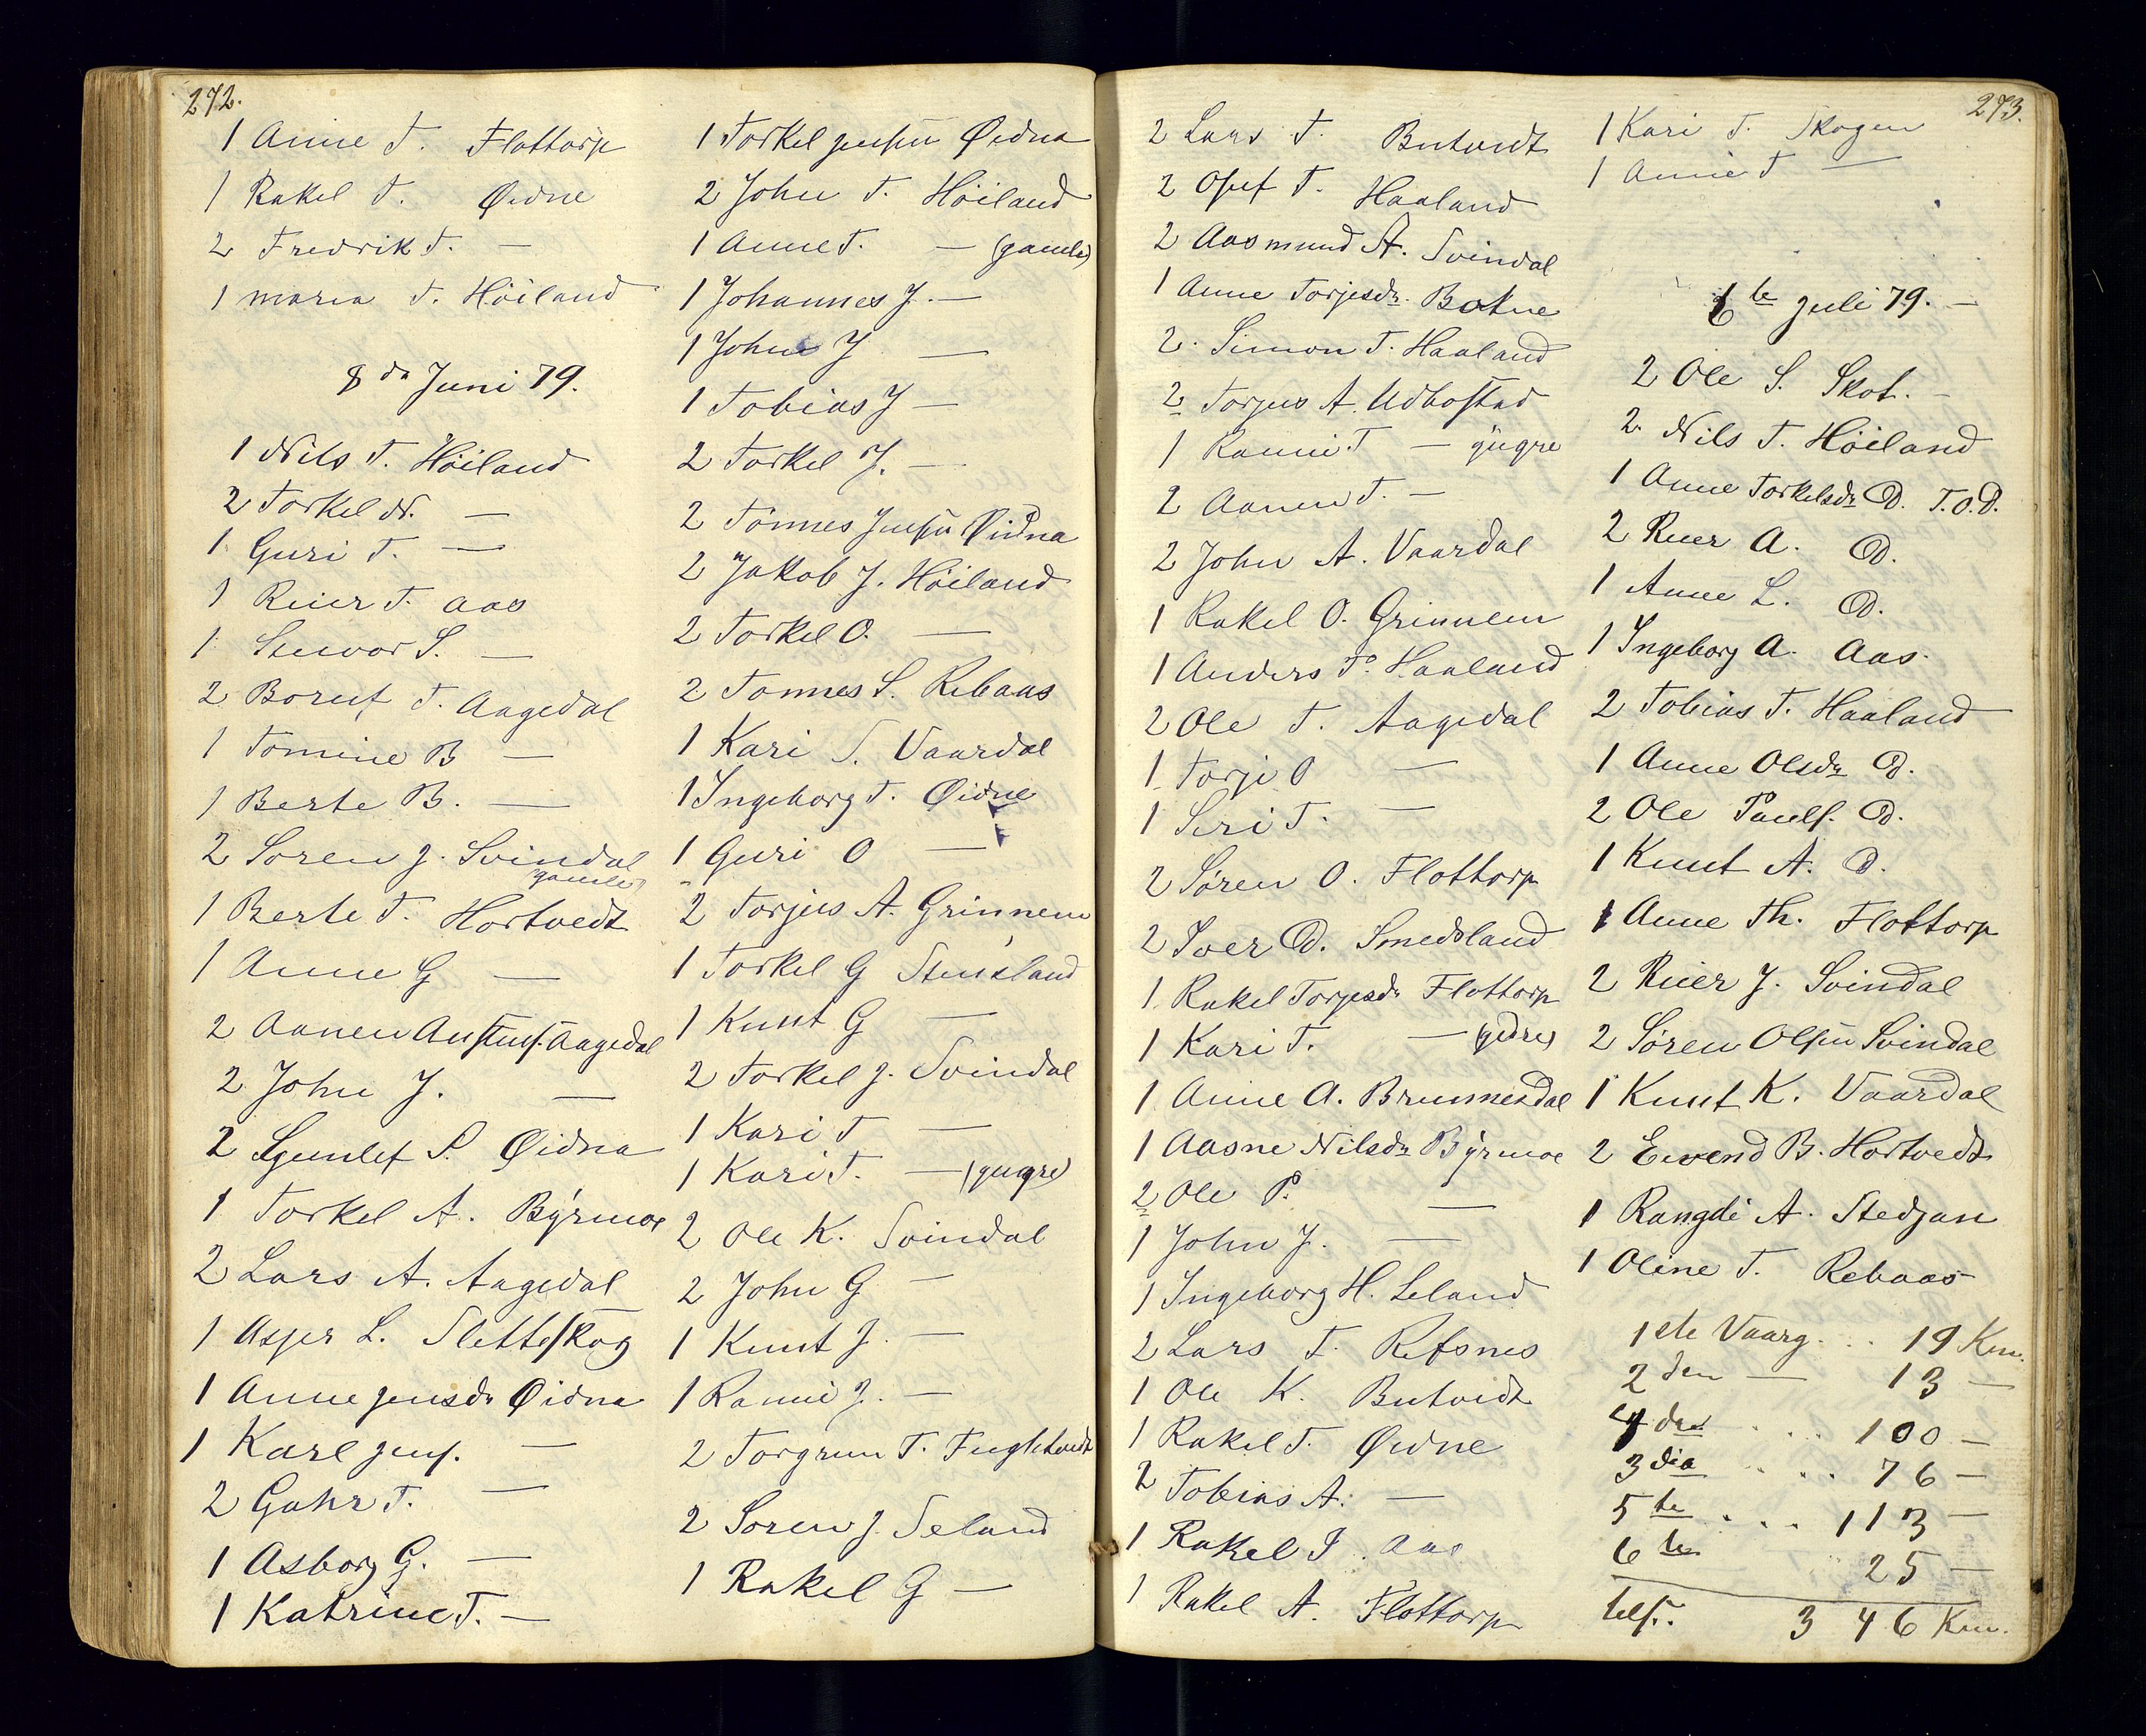 272.
1 Anne T. Flottorp
1 Rakel T. Øidne
2 Fredrik T. —
1 maria T. Höiland
8de Juni 79.
1 Nils T. Höiland
2 Torkel N. —
1 Guri T. —
1 Reier T. Aas
1 Siever S. —
2 Boruf T. Aagedal
1 Tomine B —
1 Berte B. —
2 Soren J. Svindal
gamle)
1 Berte T. Hortvedt
1 Anne G —
2 Aanen Austens. Aagedal
2 John J. —
2 Gunlef S. Øidna
1 Torkel A. Byrmoe
2 Lars A. Aagedal
1 Asper L. Sletteskog
1 Anne Jensdr Øidna
1 Karl Jens. —
2 Gahr T. —
1 Asborg G. —
1 Katrine T. —
1 Torkel Jensen Øidna
2 John T. Höiland
1 Anne T. — (gamle)
1 Johannes J. —
1 John J —
1 Tobias J —
2 Torkel J. —
2 Tönnes Jensen Øidna
2 Jakob J. Höiland
2 Torkel O. —
2 Tonnes S. Rebaas
1 Kari S. Vaardal
1 Ingeborg T. Øidne
1 Guri O —
2 Torjus A. Grinnem
1 Torkel G Stensland
1 Knut G —
2 Torkel J. Svindal
1 Kari T —
1 Kari T. — (yngre)
2 Ole K. Svindal
2 John G —
1 Knut J. —
1 Rannei J. —
2 Torgrim T. Fuglestvedt
2 Soren J. Seland
1 Rakel G —
2 Lars T. Butvedt
2 Osuf T. Haaland
2 Aasmund A. Svindal
1 Anne Torjesdr. Bakne
2. Simon T. Haaland
2 Torjus A. Udbostad
1 Rannei T — yngre
2 Aanen T. —
2 John A. Vaardal
1 Rakel O. Grinnem
1 Anders T. Haaland
2 Ole T. Aagedal
1 Torje O —
1 Siri T. —
2 Søren O. Flottorp
2 Iver D. Smedsland
1 Rakel Torjesdr Flottorp
1 Kari T. — (ældre)
1 Anne A. Brunnesdal
1 Aasne Nilsdr Byrmoe
2 Ole P. —
1 John J. —
1 Ingeborg H. Leland
2 Lars T. Refsnes
1 Ole K. Butvedt
1 Rakel T. Øidne
2 Tobias A. —
1 Rakel I. Aas
1 Rakel A. Flottorp
273.
1 Kari T. Skogen
1 Anne T —
6te Juli 79. —
2 Ole S. Skof. —
2 Nils T. Höiland
1 Anne Torkelsdr D. T.O.D.
2 Reier A. D.
1 Anne L. D.
1 Ingeborg A. Aas.
2 Tobias T. Haaland
1 Anne Olsdr D.
2 Ole Pauls. D.
1 Knut A. D.
1 Anne Th. Flottorp
2 Reier J. Svindal
2 Søren Olsen Svindal
1 Knut K. Vaardal
2 Eivend B. Hortvedt
1 Rangdi A. Stedjan
1 Oline T. Rebaas
1ste Vaarg. . . 19 Km.
2den — 13 —
4de . . . 100 —
3die . . . 76 —
5te . . . 113 —
6te 25 —
tils. 346 Km.